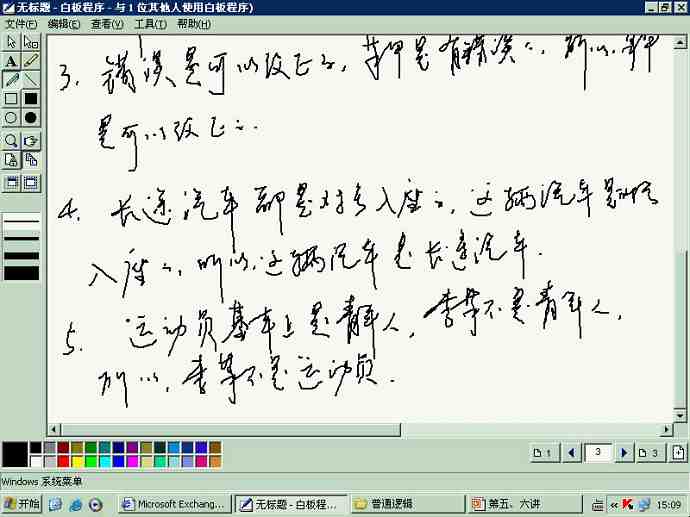 无标题 - 白板程序 - 与 1 位其他人使用白板程序)
文件(F) 编辑(E) 查看(V) 工具(T) 帮助(H)
3. 错误是可以改正的, 某甲是有错误的, 所以, 某甲
是可以改正的.
4. 长途汽车都是对号入座的, 这辆汽车是对号
入座的, 所以, 这辆汽车是长途汽车.
5. 运动员基本上是青年人, 李某不是青年人,
所以, 李某不是运动员.
1 3 3
Windows 系统菜单
开始 Microsoft Exchang... 无标题 - 白板程... 普通逻辑 第五、六讲 15:09